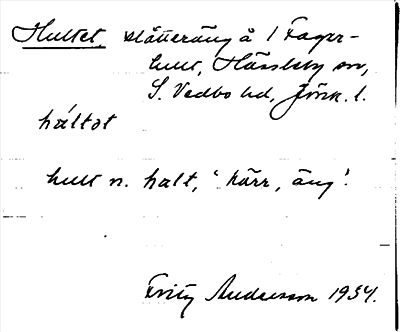 Hultet, slåtteräng å 1 Fager-
hult, Hässleby sn,
S. Vedbo hd, Jönk. l.
håltət
hult n. halt, 'kärr, äng'.
Fritz Andersson 1934.